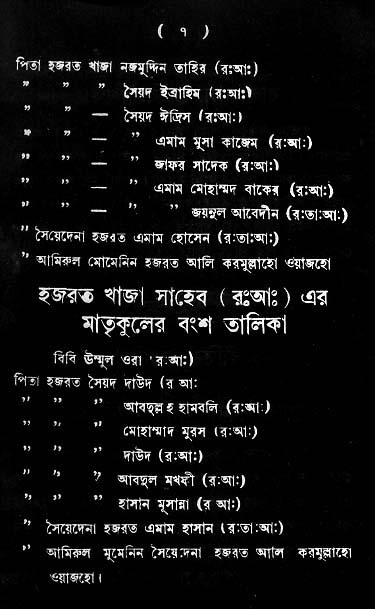 ( ৭ )
পিতা হজরত খাজা নজমুদ্দিন তাহির (র:আ:)
” ” ” সৈয়দ ইব্রাহিম (র:আ:)
” ” — সৈয়দ ঈদ্রিস (র:আ:)
” ” — ” এমাম মুসা কাজেম (র:আ:)
” ” — ” জাফর সাদেক (র:আ:)
” ” — ” এমাম মোহাম্মদ বাকের (র:আ:)
” ” — ” ” জয়নুল আবেদীন (র:তা:আ:)
” সৈয়েদেনা হজরত এমাম হোসেন (র:তা:আ:)
” আমিরুল মোমেনিন হজরত আলি করমুল্লাহো ওয়াজহো
হজরত খাজা সাহেব (র:আ:) এর
মাতৃকুলের বংশ তালিকা
বিবি উম্মুল ওরা র:আ:)
পিতা হজরত সৈয়দ দাউদ (র আ:
” ” ” আবদুল্ল হ হামবলি (র:আ:)
” ” ” মোহাম্মাদ মুরস (র:আ:)
” ” ” দাউদ (র:আ:)
” ” ” আবদুল মখফী (র:আ:)
” ” ” হাসান মূসান্না (র আ:)
” সৈয়েদেনা হজরত এমাম হাসান (র:তা:আ:)
” আমিরুল মুমেনিন সৈয়েদেনা হজরত আলি করমুল্লাহো
ওয়াজহো।